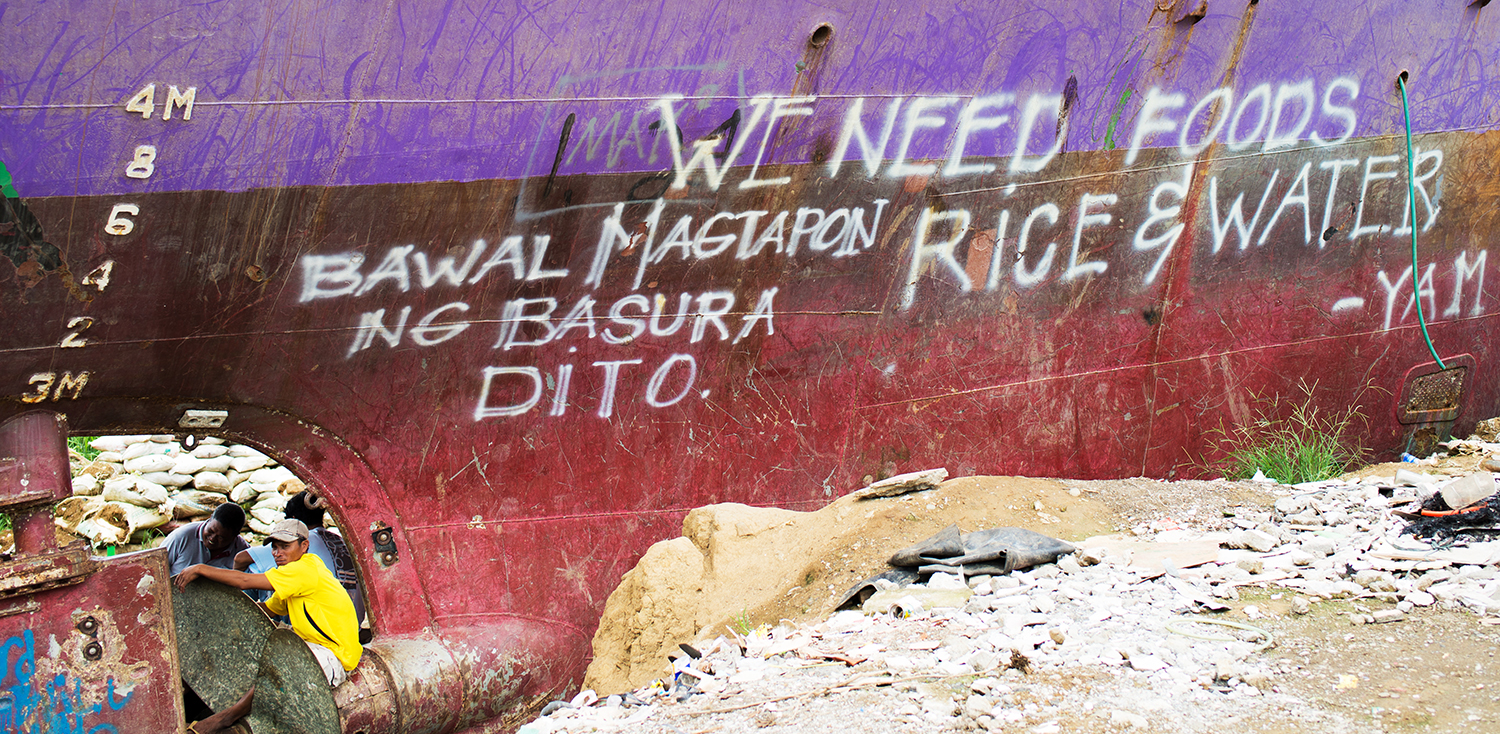 4M
8
6
4
2
3M
WE NEED FOODS
RICE & WATER
-YAM
BAWAL MAGTAPON
NG BASURA
DITO.